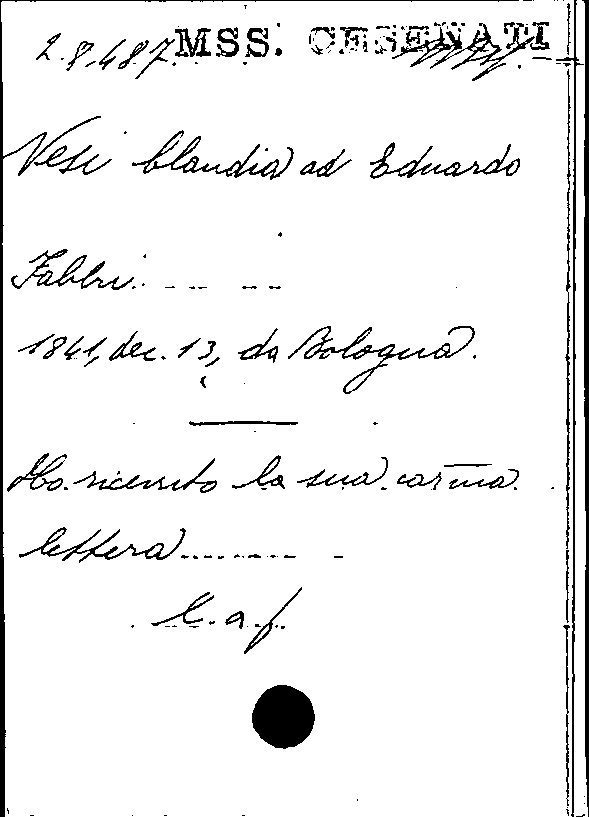 2.8.487. MSS. CESENATI
Vesi Claudia ad Eduardo
Fabbri. -- --
1841, dec. 13, da Bologna.
Ho ricevuto la sua car̅ma
lettera........ -
C. a. f.